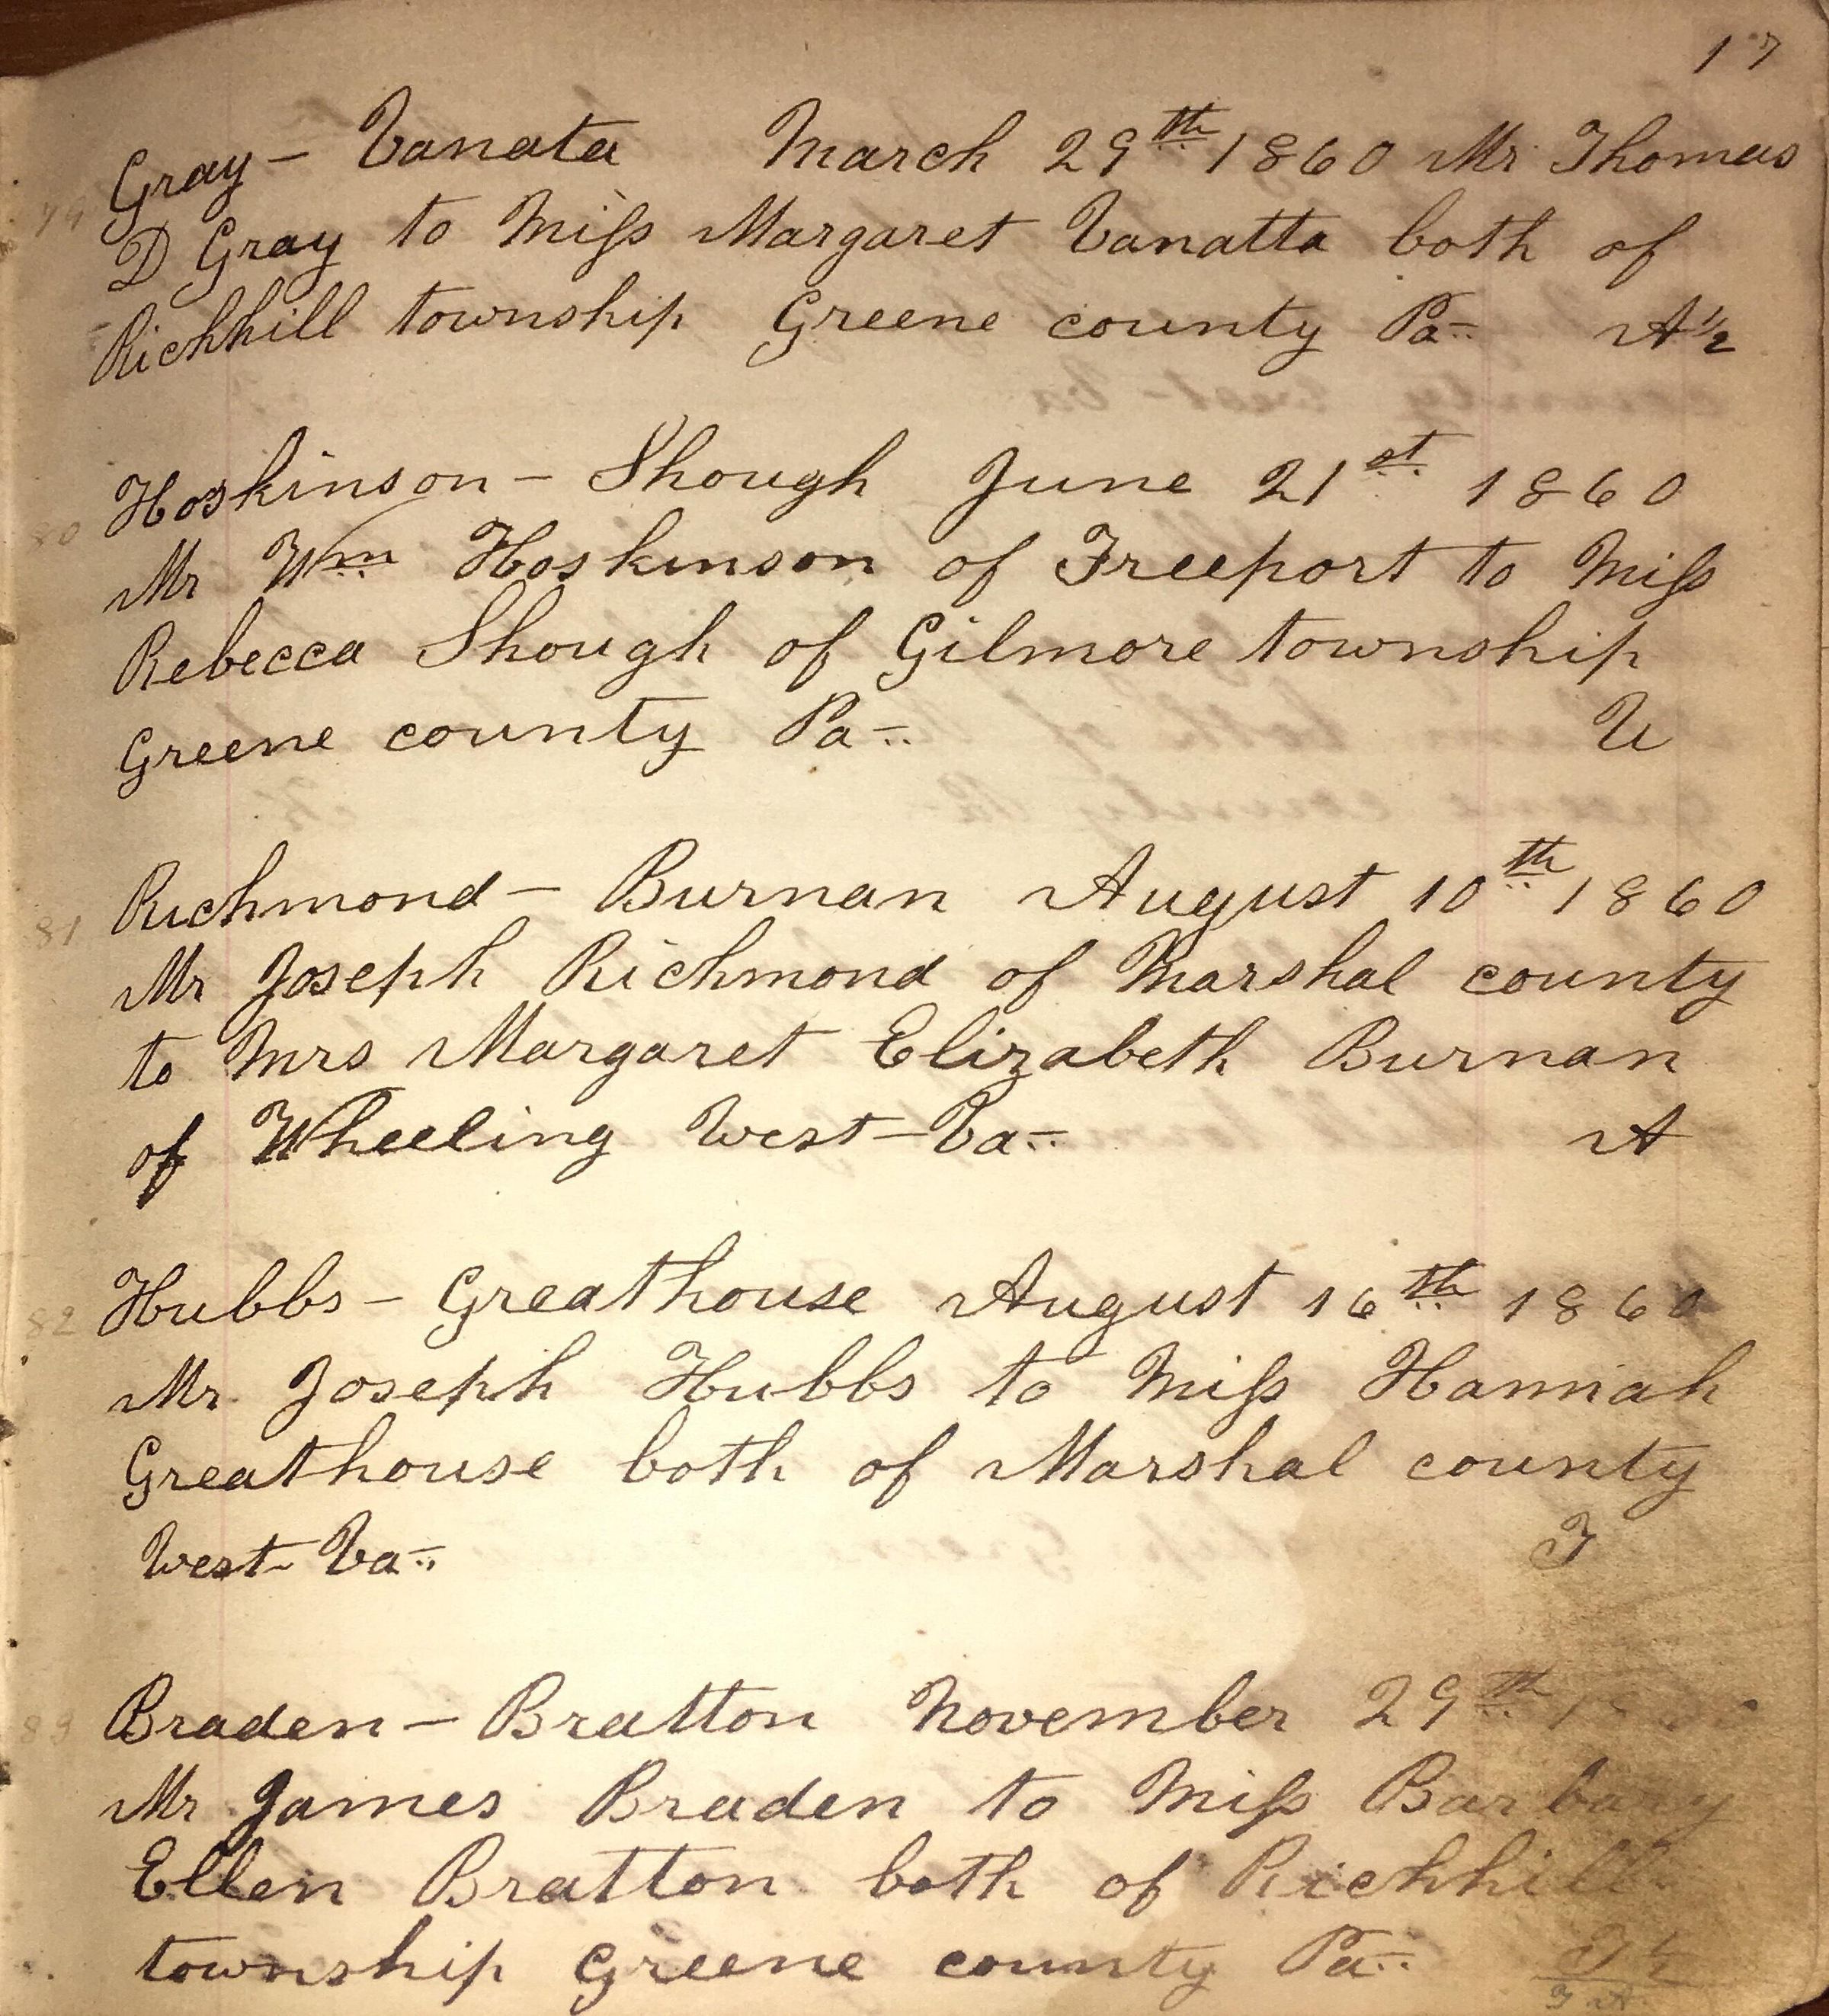 17
79 Gray – Vanata March 29th 1860 Mr Thomas
D Gray to Miss Margaret Vanatta both of
Richhill township Greene county Pa A½
80 Hoskinson – Shough June 21st 1860
Mr Wm Hoskinson of Freeport to Miss
Rebecca Shough of Gilmore township
Greene county Pa U
81 Richmond – Burnan August 10th 1860
Mr Joseph Richmond of Marshal county
to Mrs Margaret Elizabeth Burnan
of Wheeling West – Va A
82 Hubbs – Greathouse August 16th 1860
Mr. Joseph Hubbs to Miss Hannah
Greathouse both of Marshal county
West – Va F
83 Braden – Bratton November 29th
Mr James Braden to Miss Barbary
Ellen Bratton both of Richhill
township Greene county Pa